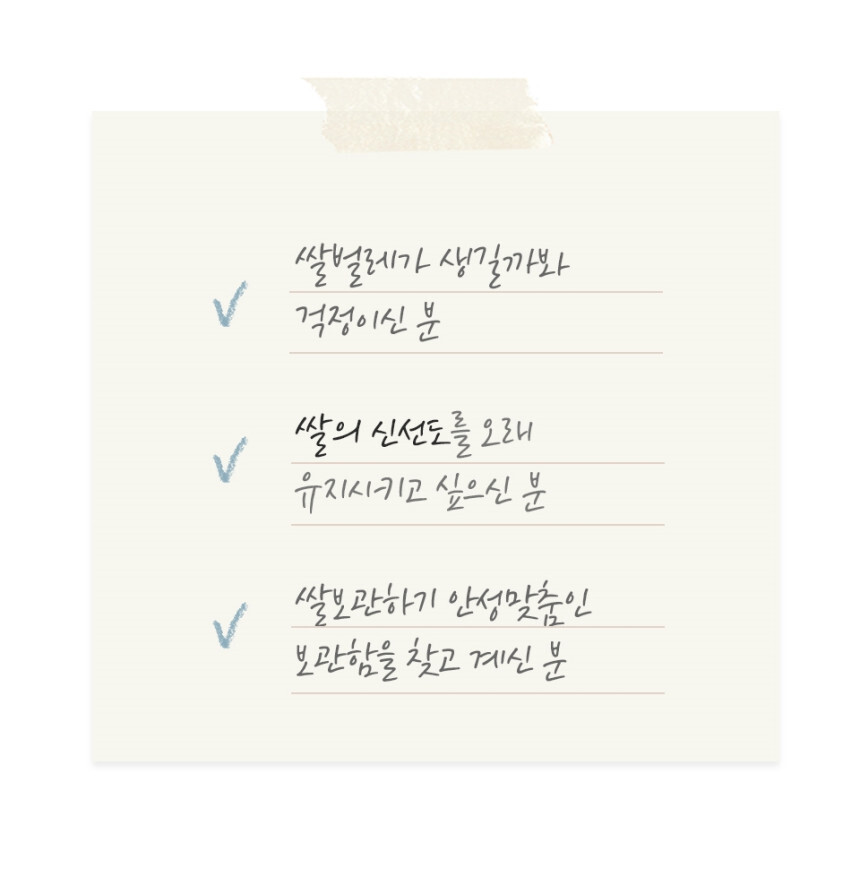 쌀벌레가 생길까봐
걱정이신 분
쌀의 신선도를 오래
유지시키고 싶으신 분
쌀보관하기 안성맞춤인
보관함을 찾고 계신 분